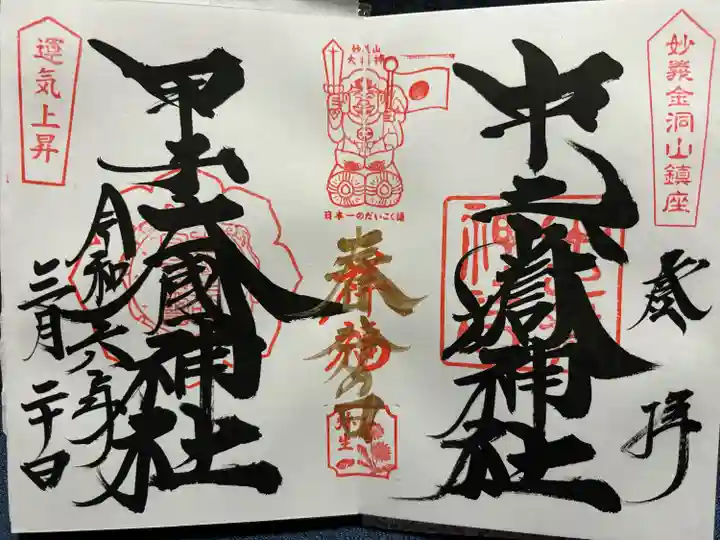 妙義金洞山鎮座
奉拝
中之嶽神社
妙義山
大神
日本一のだいこく様
春分の日
弥生
甲子大國神社
運気上昇
令和六年
三月二十日